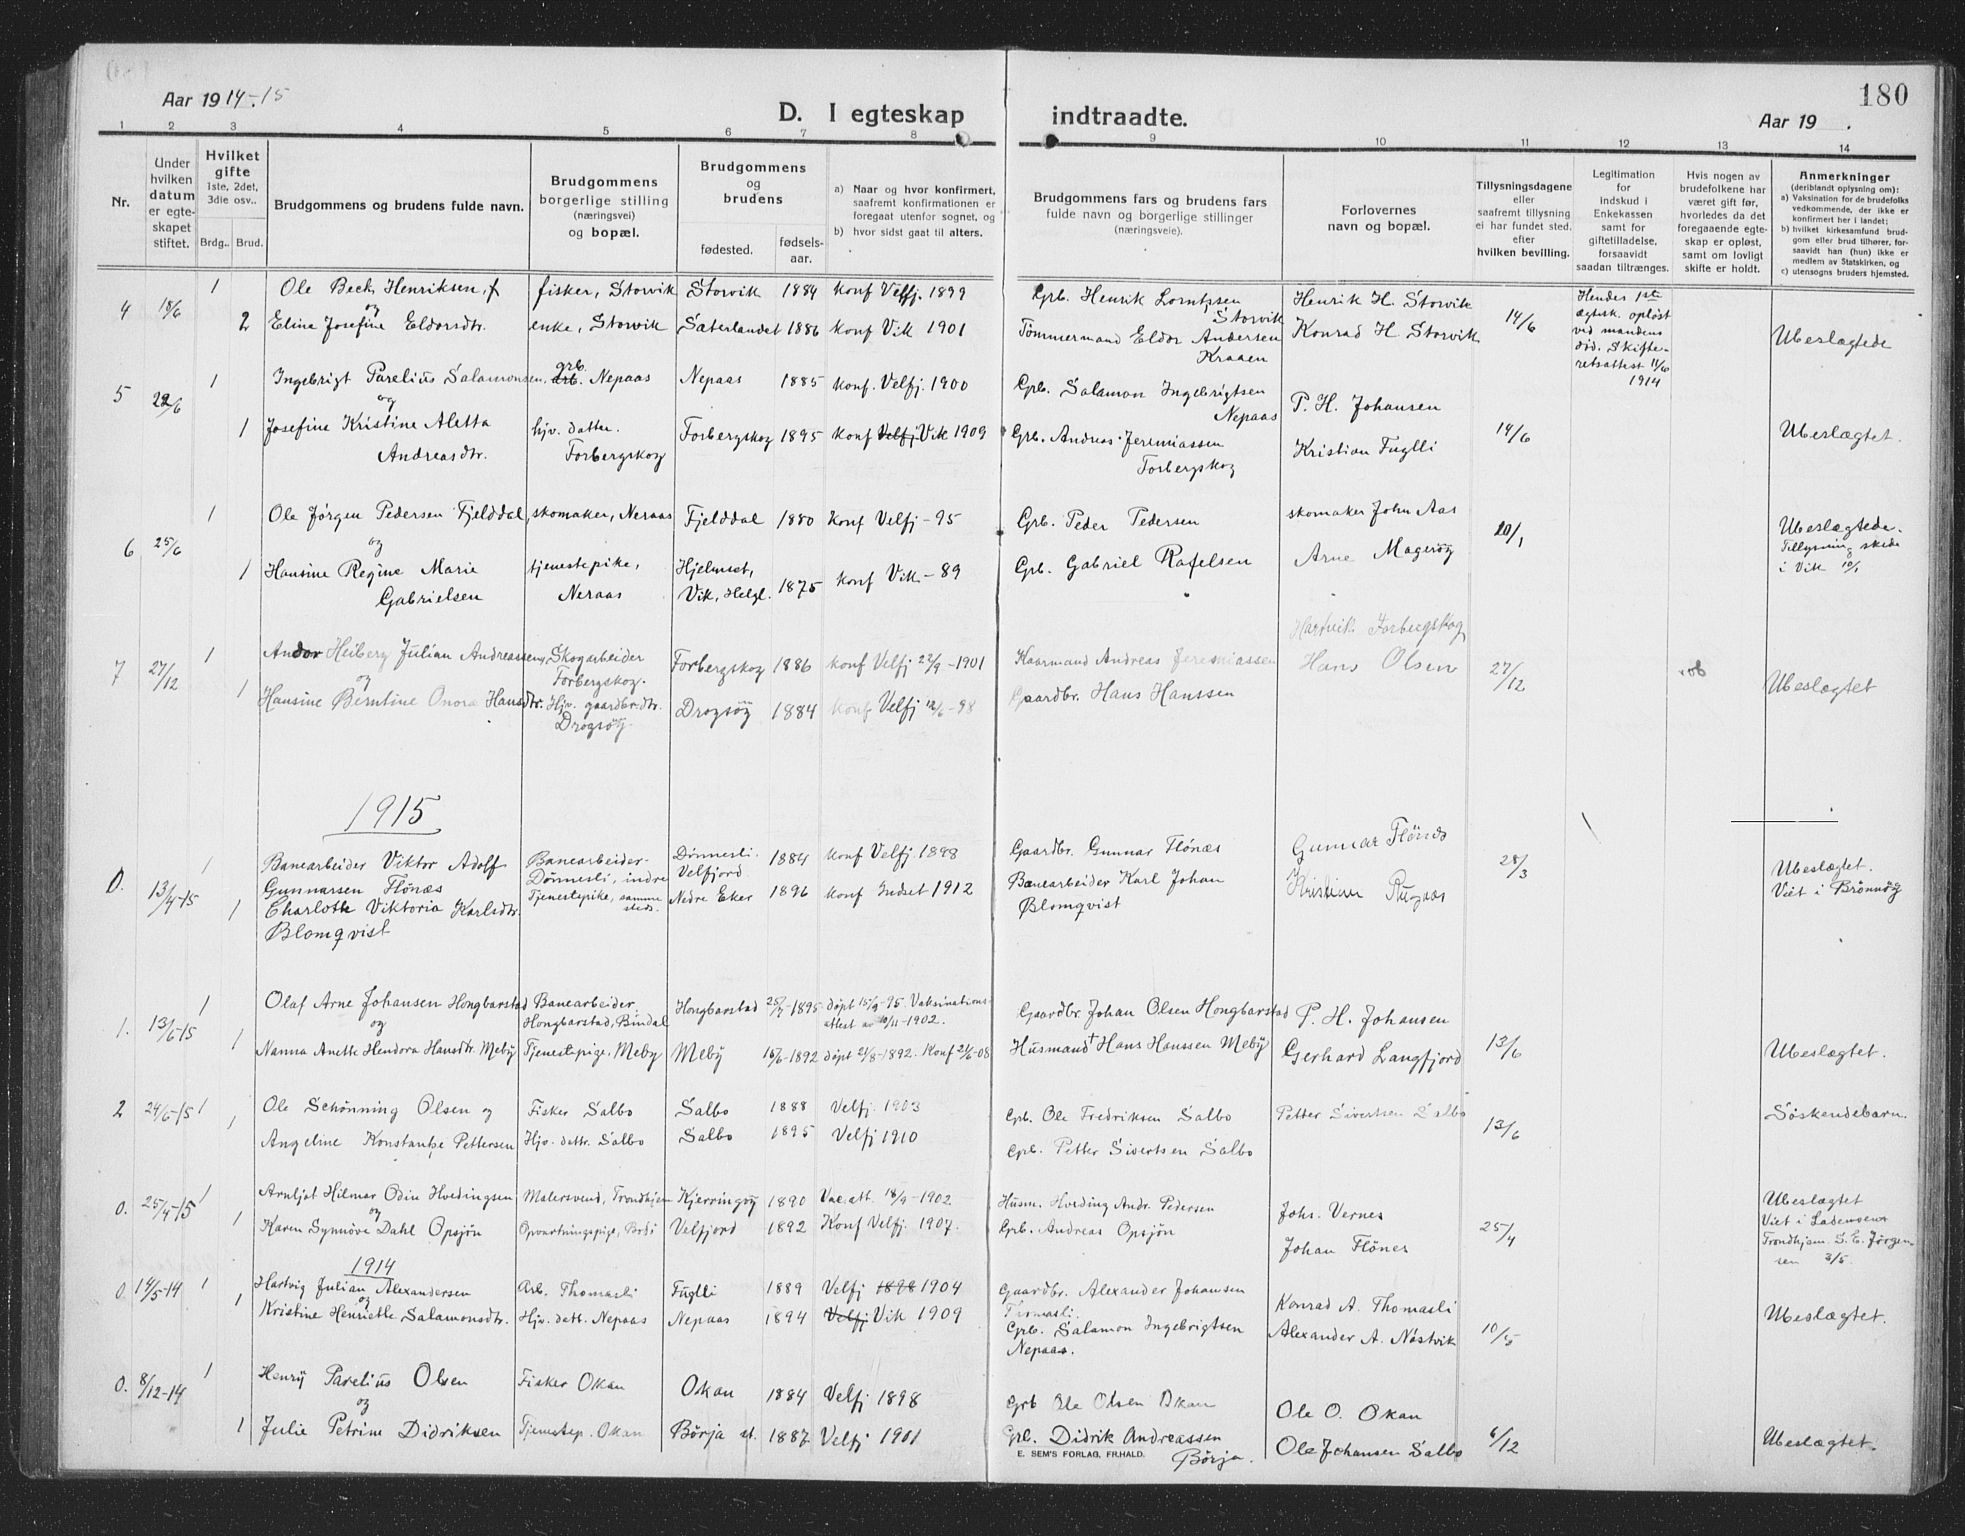 Aar 1914-15
D. I egteskap indtraadte.
180
Aar 19 .
1 2 3 4 5 6 7 8 9 10 11 12 13 14
Nr.
Under hvilken datum er egteskapet stiftet.
Hvilket gifte 1ste, 2det, 3die osv..
Brdg.. Brud.
Brudgommens og brudens fulde navn.
Brudgommens borgerlige stilling (næringsvei) og bopæl.
Brudgommens og brudens
fødested. fødselsaar.
a) Naar og hvor konfirmert, saafremt konfirmationen er foregaat utenfor sognet, og
b) hvor sidst gaat til alters.
Brudgommens fars og brudens fars fulde navn og borgerlige stillinger (næringsveie).
Forlovernes navn og bopæl.
Tillysningsdagene eller saafremt tillysning ei har fundet sted, efter hvilken bevilling.
Legitimation for Indskud i Enkekassen samt for giftetilladelse, forsaavidt saadan tiltrænges.
Hvis nogen av brudefolkene har været gift før, hvorledes da det foregaaende egteskap er opløst, samt om lovligt skifte er holdt.
Anmerkninger (deriblandt oplysning om):
a) Vaksination for de brudefolks vedkommende, der ikke er konfirmert her i landet;
b) hvilket kirkesamfund brudgom eller brud tilhører, forsaavidt han (hun) ikke er medlem av Statskirken, og
c) utensogns bruders hjemsted.
4 18/6 1 Ole Beck Henriksen, f fisker, Storvik Storvik 1884 konf Velfj. 1899 Grb. Henrik Lorntzsen Storvik Henrik H. Storvik 14/6
og
2 Eline Josefine Eldorsdtr. enke, Storvik Sæterlandet 1886 konf Vik 1901 Tømmermand Eldor Andersen Kraaen Konrad H. Storvik
Hendes 1ste ægtesk. opløst ved mandens död. Skifteretsattest 11/6 1914
Ubeslægtede
5 22/6 1 Ingebrigt Parelius Salamonsen. grb. Nepaas Nepaas 1885 konf. Velfj. 1900 Grb. Salamon Ingebrigtsen Nepaas P. H. Johansen
og
1 Josefine Kristine Aletta Andreasdtr. hjv. datter. Forbergskog Forbergskog 1895 konf Velfj Vik 1909 Grb. Andreas Jeremiassen Forbergskog Kristian Fuglli 14/6 Ubeslægtet.
6 25/6 1 Ole Jørgen Pedersen Fjelddal, skomaker, Neraas Fjelddal 1880 Konf Velfj - 95 Grb. Peder Pedersen skomaker John Aas 10/1
og
1 Hansine Regine Marie Gabrielsen tjenestepike, Neraas Hjelmset, Vik, Helgl. 1875 konf Vik - 89 Grb. Gabriel Rafelsen Arne Magerøy
Ubeslægtede. Tillysning skede i Vik 10/1
7 27/12 1 Andor Heiberg Julian Andreassen, Skogarbeider Forbergskog. Forbergskog 1886 konf Velfj 22/9 - 1901 Kaarmand Andreas Jeremiassen Hartvik Forbergskog
og
1 Hansine Berntine Onora Hansdtr. Hjv. gaardbr.dtr. Drogsöy Drogsöy 1884 konf Velfj 12/6 - 98 Gaardbr. Hans Hanssen Hans Olsen 27/12 Ubeslægtet
1915
0. 13/4-15 1 Banearbeider Viktor Adolf Gunnarsen Flönæs Banearbeider- Dönnesli, indre Dönnesli. Velfjord 1884 konf Velfj. 1898 Gaardbr. Gunnar Flönæs Gunnar Flönes
1 Charlotte Viktoria Karlsdtr. Blomqvist Tjenestepike, samme steds. Nedre Eker 1896 konf Indset 1912 Banearbeider Karl Johan Blomqvist Kristian Rugaas 28/3
Ubeslægtet. Viet i Brönnöy
1. 13/6-15 1 Olaf Arne Johansen Hongbarstad Banearbeider, Hongbarstad, Bindal Hongbarstad 25/7-1895 döpt 15/9-95. Vaksinationsattest av 10/11-1902. Gaardbr Johan Olsen Hongbarstad P. H. Johansen
og
1 Nanna Anette Hendora Hansdtr. Meby Tjenestepige, Meby Meby 15/6-1892 döpt 21/8-1892. Konf 21/6-08 Husmand Hans Hanssen Meby Gerhard Langfjord 13/6 Ubeslægtet.
2 24/6-15 1 Ole Schönning Olsen og Fisker Salbo Salbo 1888 Velfj. 1903 Grb. Ole Fredriksen Salbo Petter Sivertsen Salbo
1 Angeline Konstantze Pettersen Hjv. dattr. Salbo Salbo 1895 Velfj 1910 Grb. Petter Sivertsen Salbo 13/6 Söskendebarn.
0. 25/4-15 1 Arnljot Hilmar Odin Hvedingsen Malersvend, Trondhjem Kjerringvøy 1890 Vac. att. 18/9-1902 Husm. Hveding Andr. Pedersen Johs. Vernes
og
1 Karen Synnöve Dahl Opsjön Opvartningspige, Velfjord 1892 Konf Velfj. 1907. Grb. Andreas Opsjön Johan Flönes 25/4
Ubeslægtet Viet i Lademoens Trondhjem. S. E. Jörgensen 3/5.
1914
0. 14/5-14 1 Hartvig Julian Alexandersen Arb. Thomasli Fuglli 1889 Velfj 1898 1904 Gaardbr. Alexander Johansen Tomasli. Konrad A. Thomasli
og
1 Kristine Henriette Salamonsdtr. Hjv. datt. Nepaas Nepaas 1894 Velfj Vik 1909 Grb. Salamon Ingebrigtsen Nepaas. Alexander A. Nöstvik 10/5 Ubeslægtet.
0. 8/12-14 1 Henry Parelius Olsen Fisker Okan Okan 1884 Velfj 1898 Grb Ole Olsen Okan Ole O. Okan
og
1 Julie Petrine Didriksen Tjenestep. Okan Börja st. 1887 Velfj 1901 Grb. Didrik Andreassen Börja. Ole Johansen Salbo 6/12 Ubeslægtet.
E. SEM'S FORLAG, FR.HALD.